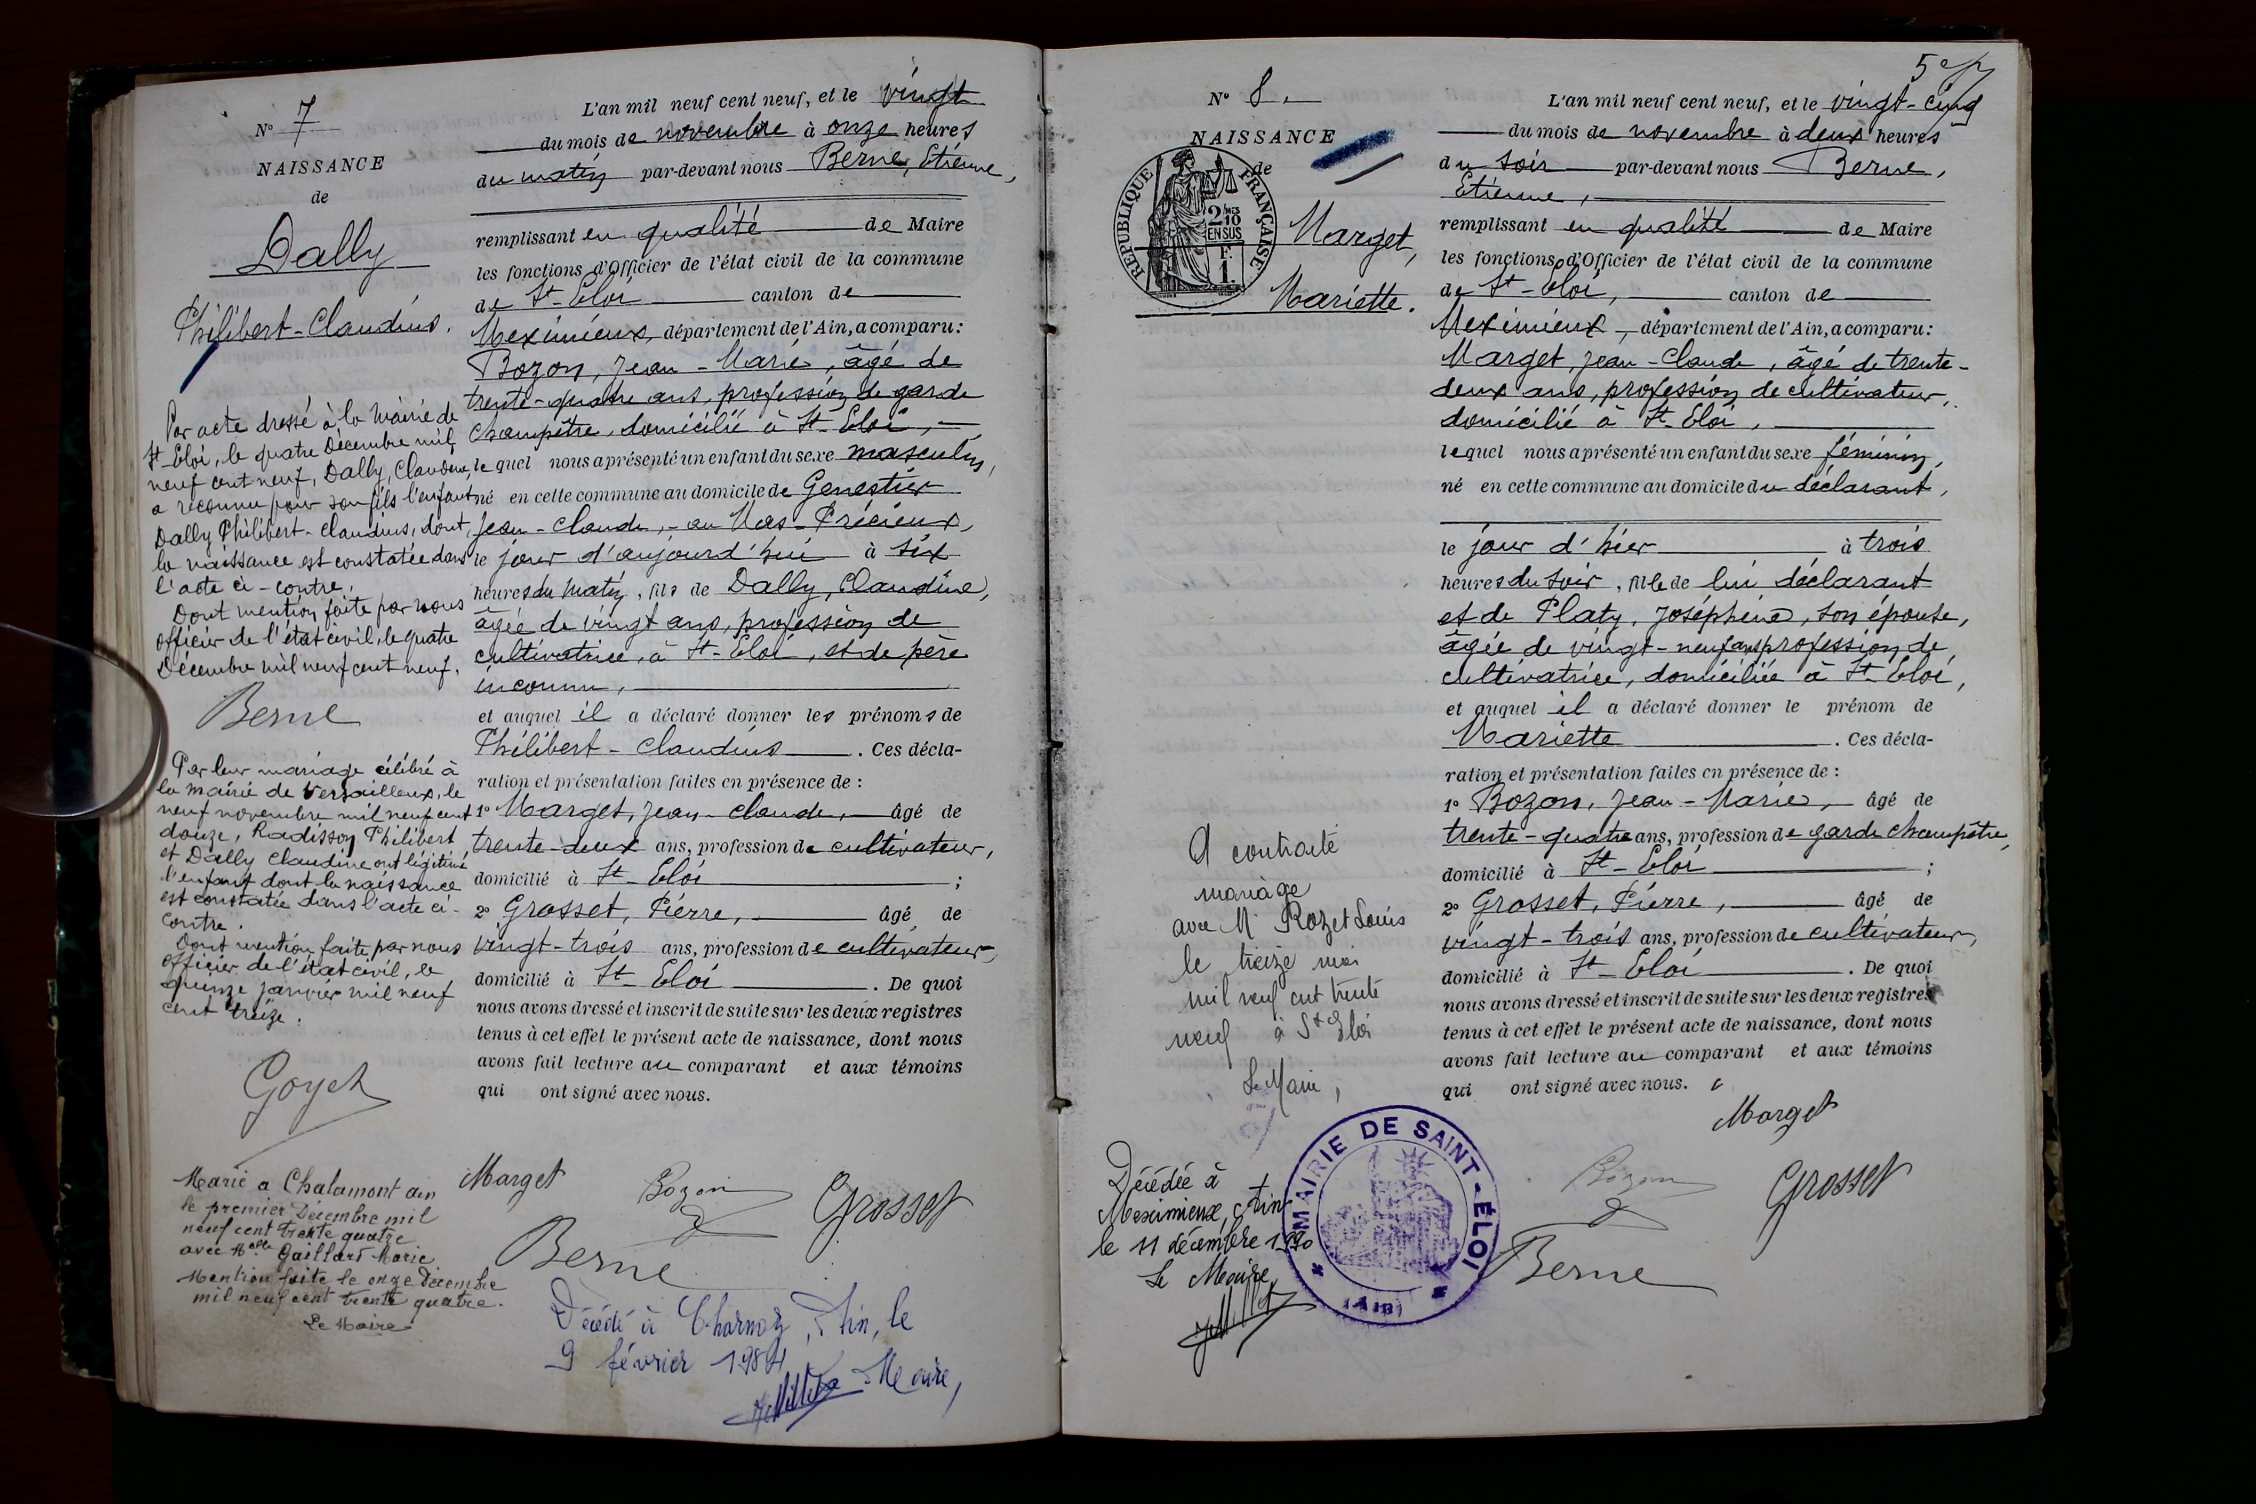 N° 7
NAISSANCE
de
Dally
Philibert-Claudius.
Par acte dressé à la Mairie de
St-Eloi, le quatre Décembre mil
neuf cent neuf, Dally, Claudine,
a reconnu pour son fils l'enfant
Dally Philibert-Claudius, dont
la naissance est constatée dans
l'acte ci-contre.
Dont mention faite par nous
officier de l'état civil, le quatre
Décembre mil neuf cent neuf.
Berne
Par leur mariage célébré à
la mairie de Versailleux, le
neuf novembre mil neuf cent
douze, Radisson Philibert
et Dally Claudine ont légitimé
l'enfant dont la naissance
est constatée dans l'acte ci-
contre.
Dont mention faite par nous
officier de l'état civil, le
quinze janvier mil neuf
cent treize.
Goyet
Marié a Chalamont ain
le premier Décembre mil
neuf cent trente quatre
avec Melle Gaillard Marie
Mention faite le onze Décembre
mil neuf cent trente quatre.
Le Maire
L'an mil neuf cent neuf, et le vingt
du mois de novembre à onze heures
du matin par-devant nous Berne, Etienne,
remplissant en qualité de Maire
les fonctions d'Officier de l'état civil de la commune
de St-Eloi canton de
Meximieux, département de l'Ain, a comparu:
Bozon, Jean-Marie, âgé de
trente-quatre ans, profession de garde
champêtre, domicilié à St-Eloi,
le quel nous a présenté un enfant du sexe masculin,
né en cette commune au domicile de Genestier
Jean-Claude, - au Mas-Précieux,
le jour d'aujourd'hui à six
heures du matin, fils de Dally, Claudine,
âgée de vingt ans, profession de
cultivatrice, à St-Eloi, et de père
inconnu,
et auquel il a déclaré donner les prénoms de
Philibert-Claudius. Ces décla-
ration et présentation faites en présence de :
1° Marget, Jean-Claude, âgé de
trente-deux ans, profession de cultivateur,
domicilié à St-Eloi ;
2° Grosset, Pierre, âgé de
vingt-trois ans, profession de cultivateur,
domicilié à St-Eloi. De quoi
nous avons dressé et inscrit de suite sur les deux registres
tenus à cet effet le présent acte de naissance, dont nous
avons fait lecture au comparant et aux témoins
qui ont signé avec nous.
Marget Bozon Grosset
Berne
Décédé à Charnoz, Ain, le
9 février 1984
Le Maire,
5e
N° 8.
NAISSANCE
de
RÉPUBLIQUE FRANÇAISE
2/10
EN SUS
F.
1
Marget,
Mariette.
A contracté
mariage
avec Mr Rozet Louis
le treize mai
mil neuf cent trente
neuf à St Eloi
Le Maire,
Décédée à
Meximieux, Ain
le 11 décembre 1990
Le Maire
MAIRIE DE SAINT-ÉLOI
(AIN)
L'an mil neuf cent neuf, et le vingt-cinq
du mois de novembre à deux heures
du soir par-devant nous Berne,
Etienne,
remplissant en qualité de Maire
les fonctions d'Officier de l'état civil de la commune
de St-Eloi, canton de
Meximieux, département de l'Ain, a comparu:
Marget, Jean-Claude, âgé de trente-
deux ans, profession de cultivateur,
domicilié à St-Eloi,
lequel nous a présenté un enfant du sexe féminin,
né en cette commune au domicile du déclarant,
le jour d'hier à trois
heures du soir, fille de lui déclarant
et de Platy, Joséphine, son épouse,
âgée de vingt-neuf ans profession de
cultivatrice, domiciliée à St-Eloi,
et auquel il a déclaré donner le prénom de
Mariette. Ces décla-
ration et présentation faites en présence de :
1° Bozon, Jean-Marie, âgé de
trente-quatre ans, profession de garde champêtre,
domicilié à St-Eloi ;
2° Grosset, Pierre, âgé de
vingt-trois ans, profession de cultivateur,
domicilié à St-Eloi. De quoi
nous avons dressé et inscrit de suite sur les deux registres
tenus à cet effet le présent acte de naissance, dont nous
avons fait lecture au comparant et aux témoins
qui ont signé avec nous.
Marget
Bozon Grosset
Berne